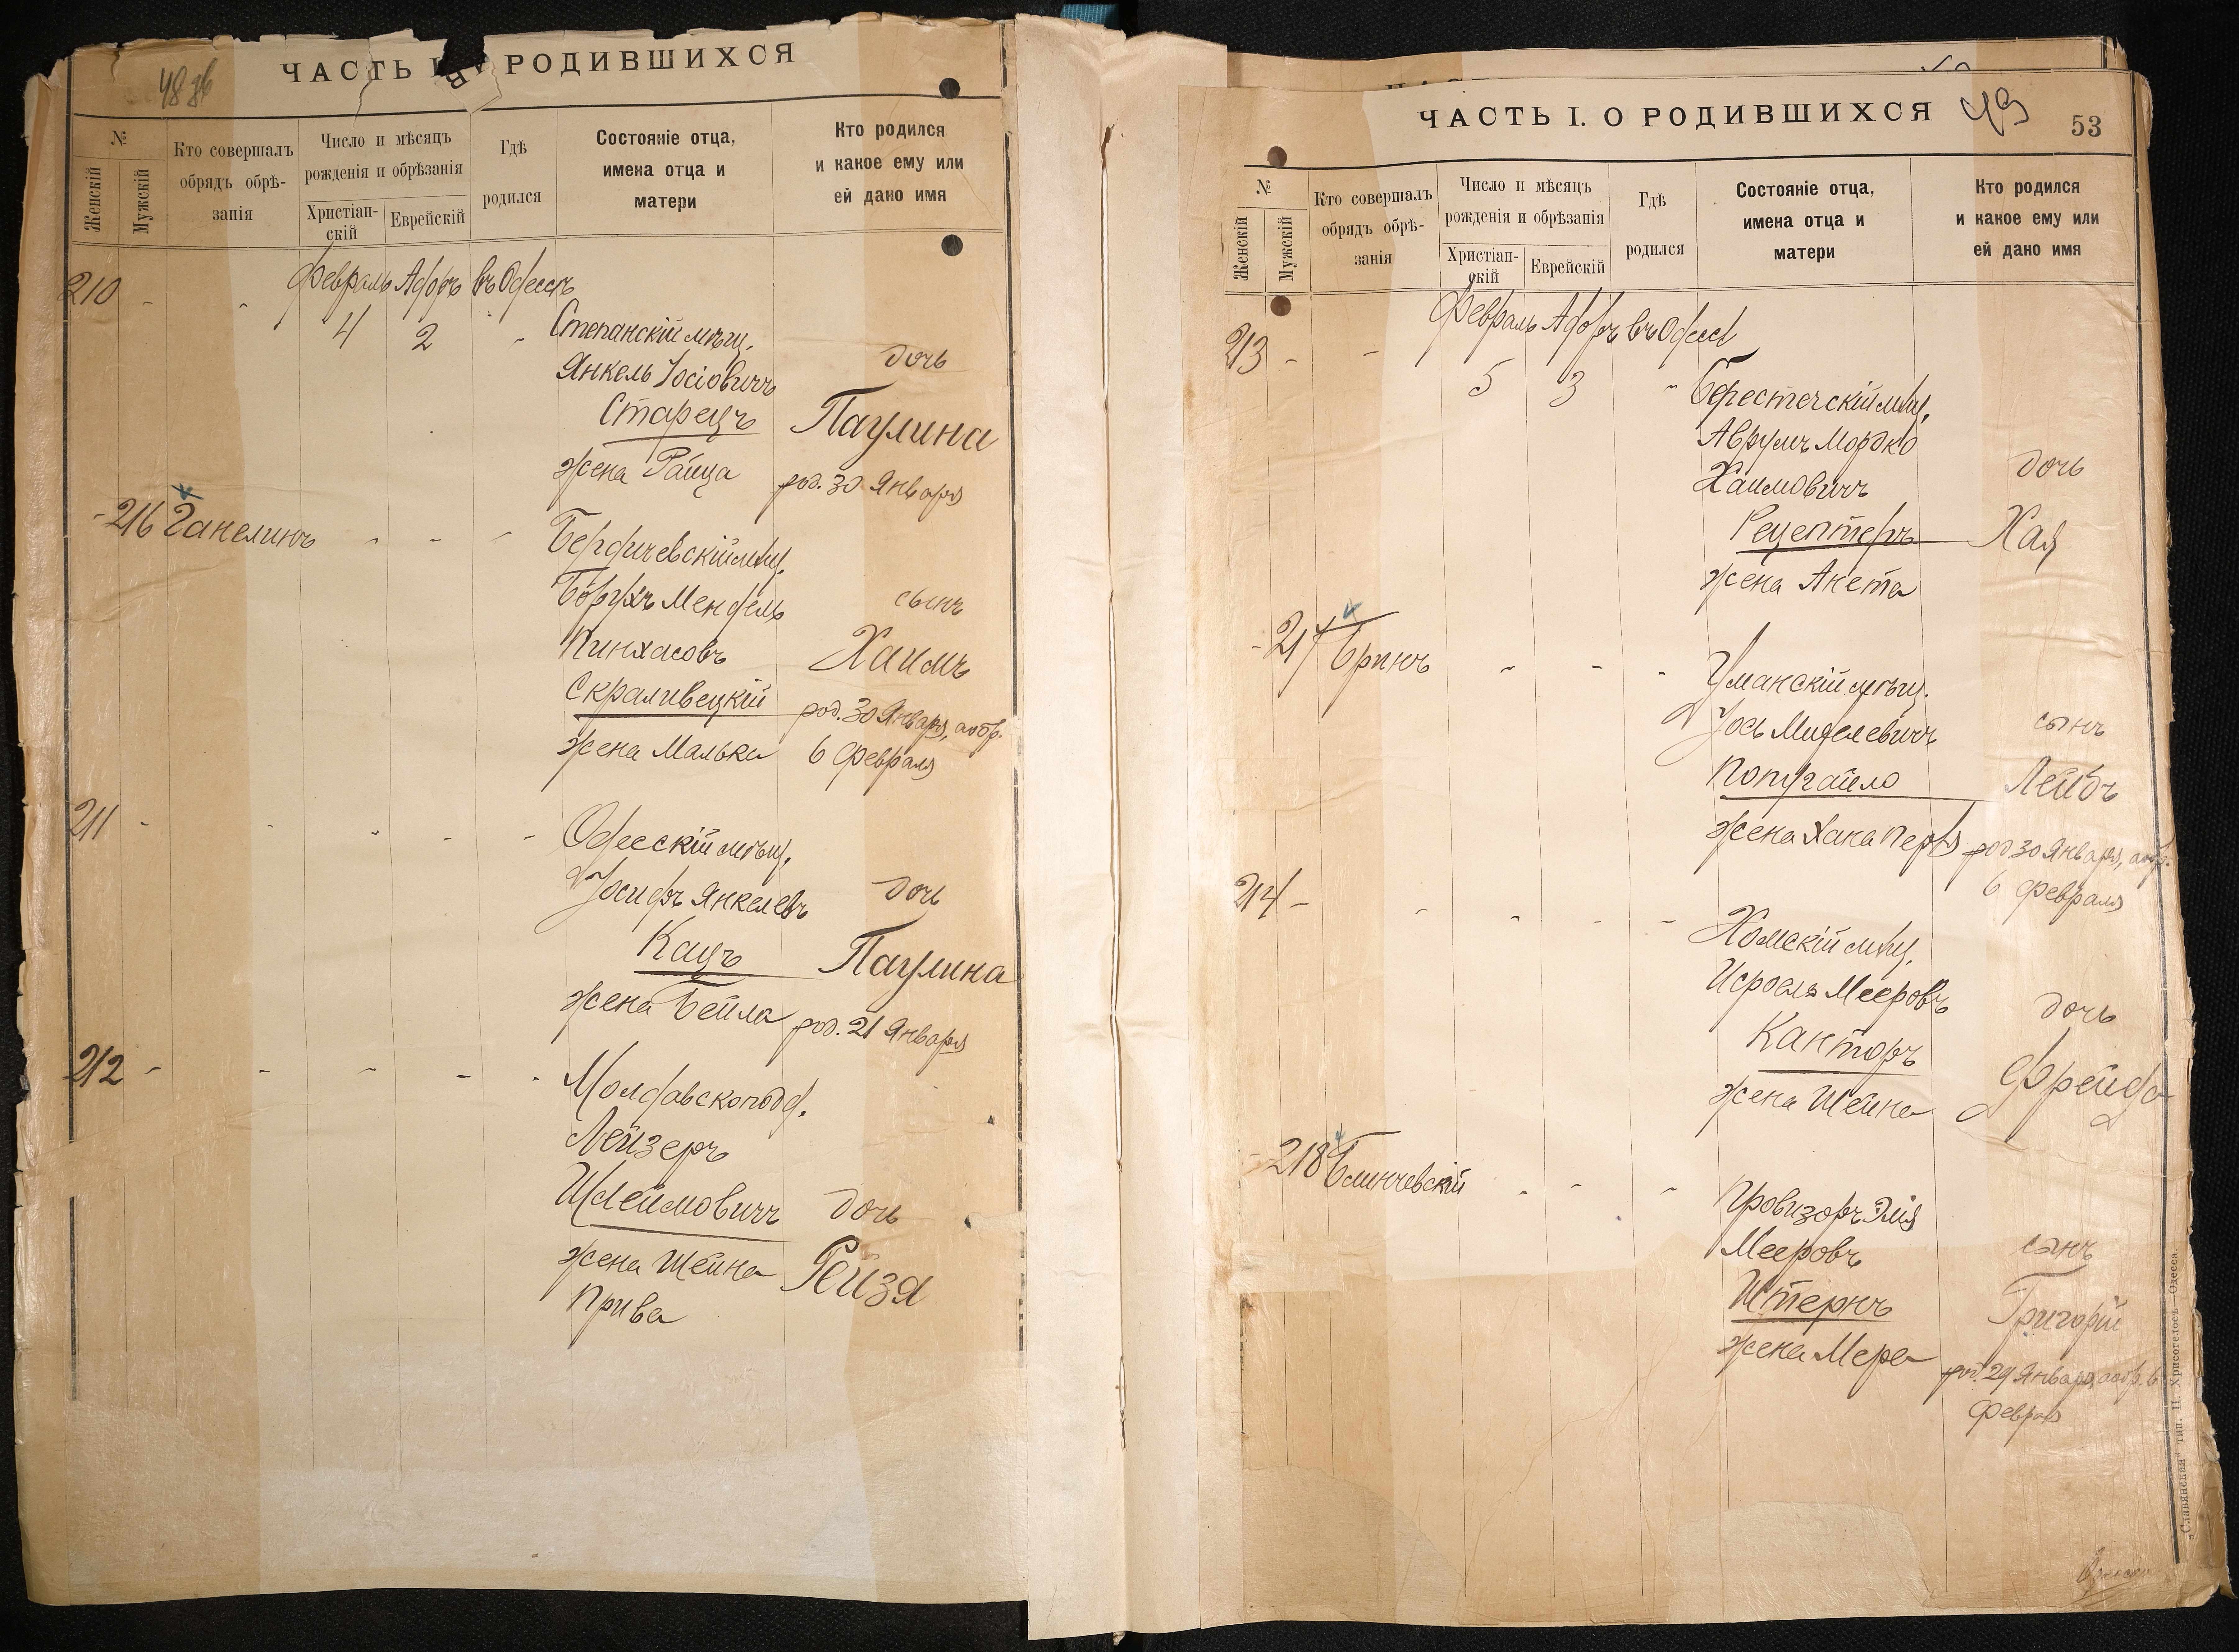 48 зв
ЧАСТЬ I. О РОДИВШИХСЯ
№
Женскій
Мужскій
Кто совершалъ
обрядъ обрѣ-
занія
Число и мѣсяцъ
рожденія и обрѣзанія
Христіан-
скій
Еврейскій
Гдѣ
родился
Состояніе отца,
имена отца и
матери
Кто родился
и какое ему или
ей дано имя
210 - - Февраль Адоръ въ Одессѣ
4 2 - Степанскій мѣщ.
Янкель Іосіовичъ дочь
Старецъ Паулина
жена Раица род. 30 Января
- 216 Ганелинъ - - - Бердичевскій мѣщ.
Борухъ Мендель сынъ
Пинхасовъ Хаимъ
Скраливецкій род. 30 Января, а обр.
жена Малька 6 Февраля
211 - - - - - Одесскій мѣщ.
Іосифъ Янкелевъ дочь
Кацъ Паулина
жена Бейла род. 21 Января
212 - - - - - Молдавскоподд.
Лейзеръ
Шлеймовичъ дочь
жена Шейна Рейзя
Прива
ЧАСТЬ I. О РОДИВШИХСЯ
49
53
№
Женскій
Мужскій
Кто совершалъ
обрядъ обрѣ-
занія
Число и мѣсяцъ
рожденія и обрѣзанія
Христіан-
скій
Еврейскій
Гдѣ
родился
Состояніе отца,
имена отца и
матери
Кто родился
и какое ему или
ей дано имя
213 - - Февраль Адоръ въ Одессѣ
5 3 - Берестечскій мѣщ.
Аврумъ Мордко
Хаимовичъ дочь
Рецептеръ Хая
жена Анета
- 217 Бринъ - - - Уманскій мѣщ.
Іось сынъ
Попугайло Лейбъ
жена Хана Перля род 30 Января, а обр.
6 Февраля
214 - - - - - Хомскій мѣщ.
Исроель Мееровъ дочь
Канторъ Фрейда
жена Шейна
- 218 Блинчевскій - - - Провизоръ Элія
Мееровъ сынъ
Штернъ Григорій
жена Мера род. 29 Января, а обр. 6
Февраля
„Славянская" тип. Н. Хрисогелосъ—Одесса.